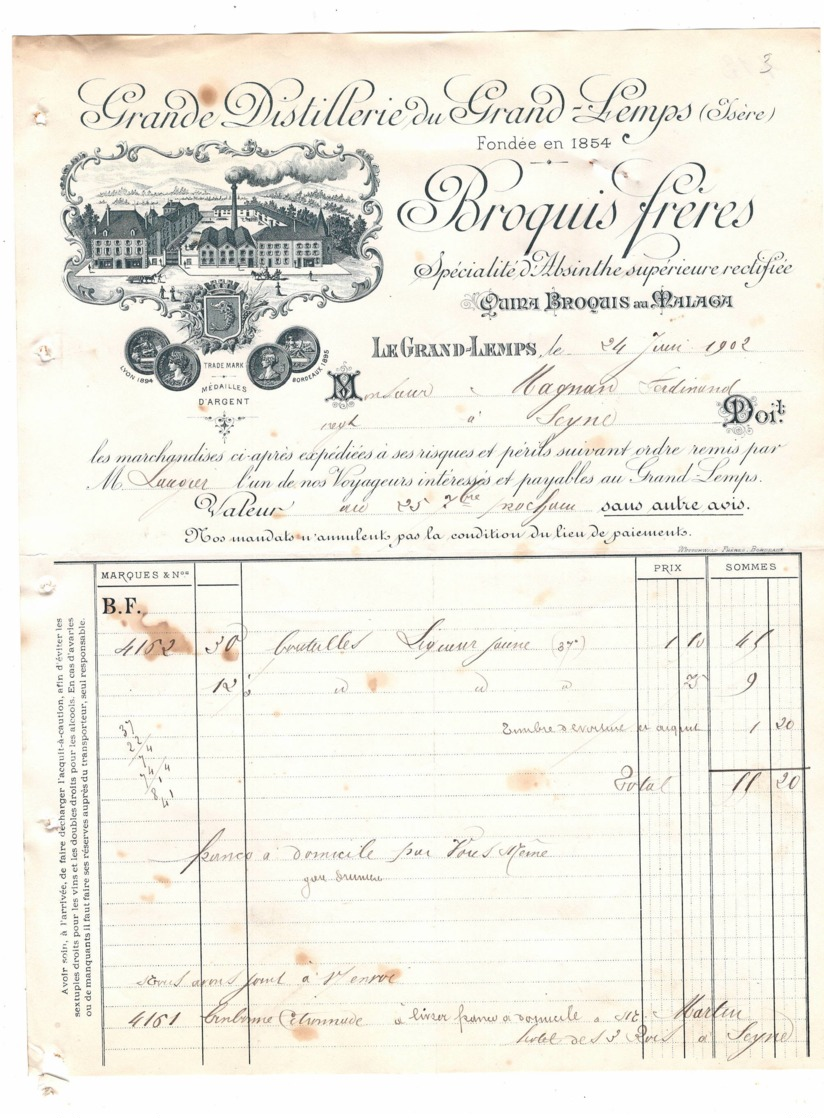 3
Grande Distillerie du Grand-Lemps (Isère)
Fondée en 1854
Broquis frères
Spécialité d'Absinthe supérieure rectifiée
Quina Broquis au Malaga
TRADE MARK
LYON 1894
BORDEAUX 1895
MÉDAILLES
D'ARGENT
Le Grand-Lemps, le 24 Juin 1902
Monsieur Magnan Ferdinand
negt à Seyne Doit
les marchandises ci-après expédiées à ses risques et périls suivant ordre remis par
M. Laugier l'un de nos Voyageurs intéressés et payables au Grand-Lemps.
Valeur au 25 7bre prochain sans autre avis.
Nos mandats n'annulent pas la condition du lieu de paiements.
Wetterwald Frères, Bordeaux
MARQUES & Nos PRIX SOMMES
B.F.
4162 30 bouteilles Liqueur jaune (37°) 1 50 45
12 d d d 75 9
Timbre d voiture et acquit 1 20
37
Total 55 20
franco à domicile par Vous Même
gare
Nous avons joint à l' envoi
4161 bonbonne à livrer franco à domicile a Mr Martin
hotel des 3 Rois a Seyne
Avoir soin, à l'arrivée, de faire décharger l'acquit-à-caution, afin d'éviter les
sextuples droits pour les vins et les doubles droits pour les alcools. En cas d'avaries
ou de manquants il faut faire ses réserves auprès du transporteur, seul responsable.